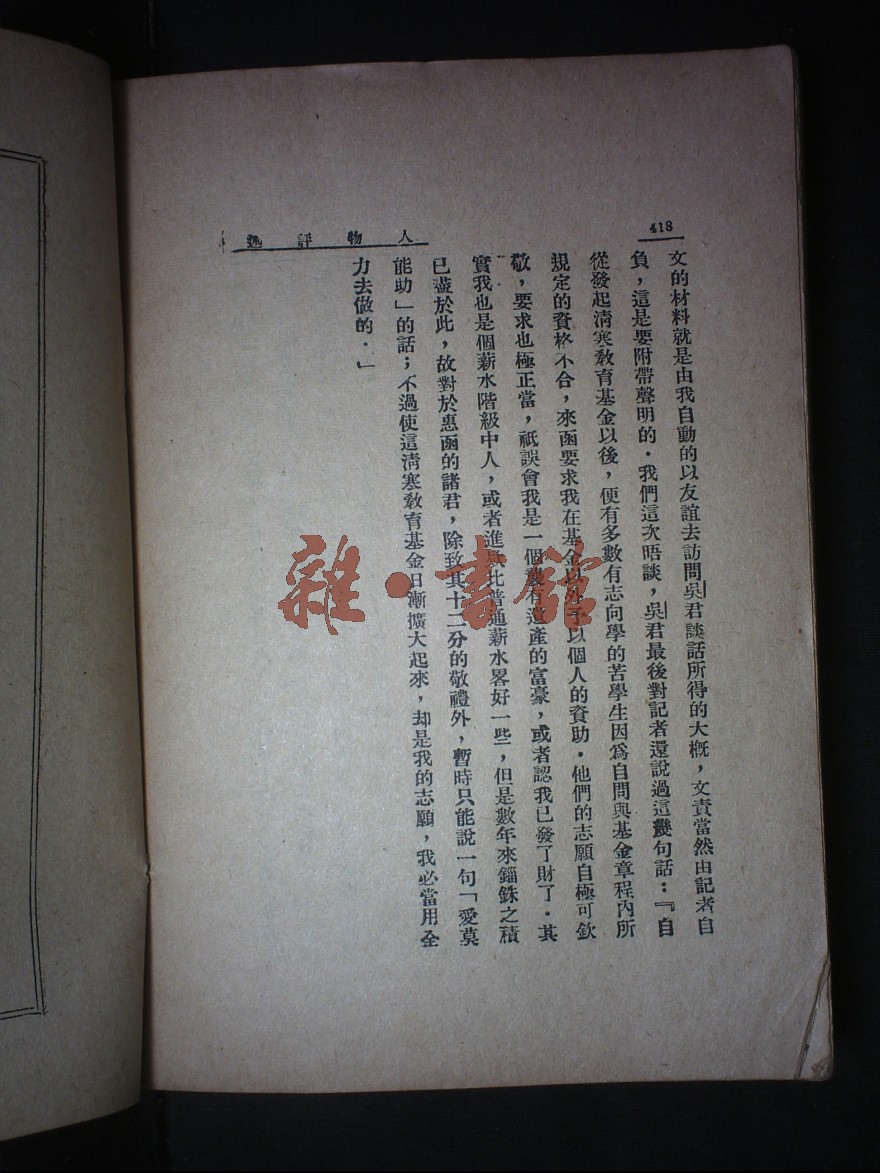 418
人物評述
文的材料就是由我自動的以友誼去訪問吳君談話所得的大概，文責當然由記者自
負，這是要附帶聲明的．我們這次晤談，吳君最後對記者還說過這幾句話：『自
從發起清寒教育基金以後，便有多數有志向學的苦學生因爲自問與基金章程內所
規定的資格不合，來函要求我在基金以外予以個人的資助．他們的志願自極可欽
敬，要求也極正當，祇誤會我是一個襲有遺產的富豪，或者認我已發了財了．其
實我也是個薪水階級中人，或者進款比普通薪水畧好一些，但是數年來錙銖之積
已盡於此，故對於惠函的諸君，除致其十二分的敬禮外，暫時只能說一句「愛莫
能助」的話；不過使這清寒教育基金日漸擴大起來，却是我的志願，我必當用全
力去做的．」
雜·書館